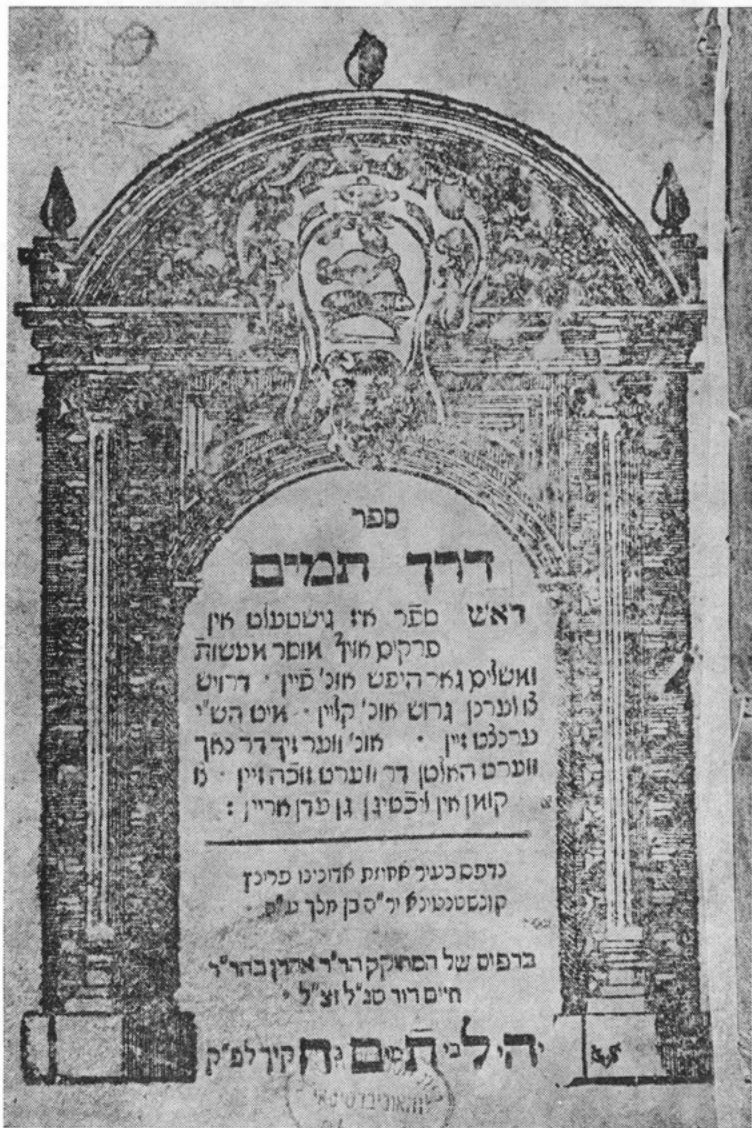 ספר
דרך תמים
דאש ספר איז גישטעלט אין
פרקים אויף מוסר מעשות
ומשלים גאר היפש אונ' פיין · דרויש
צו ווערכן גרוש אונ' קליין · מיט הש"י
זיין · אונ' ווער זיך דר נאך
ווערט האלטן דר ווערט זוכה זיין · צו
קומן אין ליכטיגן גן עדן אריין :
נדפס בעיר אדונינו פרינץ
קונשטנטינא יר"ה בן מלך
בדפוס של המחוקק הר"ר אהרן בהר"ר
חיים דוד סג"ל זצ"ל ·
יהי לבי תמים בחקיך לפ"ק